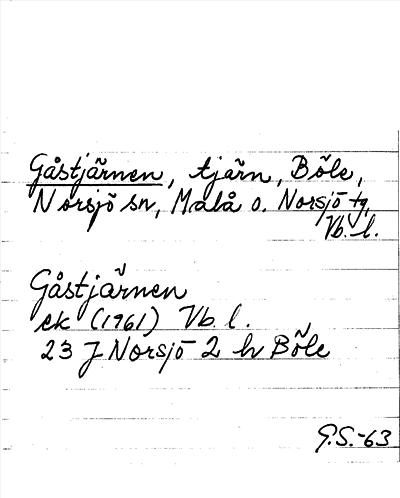 Gåstjärnen, tjärn, Böle,
Norsjö sn, Malå o. Norsjö tg,
Vb. l.
Gåstjärnen
ek (1961) Vb. l.
23 J Norsjö 2 h Böle
G.S.-63